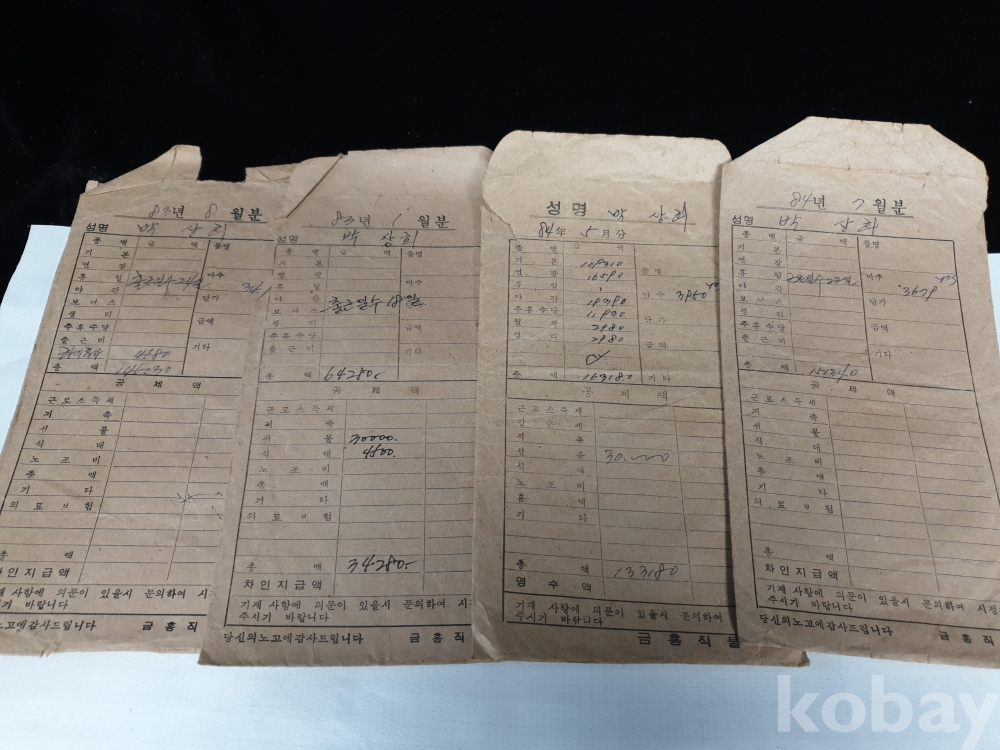 83년 8 월분
성명 박 상희
종 별 금 액 품명
기 본
연 장
휴 일 출근일수 24일 마수
야 간
보 너 스 단가
생 리
주 휴 수 당 금액
출 근 비
4580 기타
총 액
공 제 액
근 로 소 득 세
저 축
선 불
식 대
노 조 비
총 액
기 타
의 료 보 험
총 액
차 인 지 급 액
재 사항에 의문이 있을시 문의하여 시정
기 바랍니다
노고에감사드립니다 금 흥 직
83년 1 월분
성명 박 상희
종 별 금 액 품명
기 본
연 장
휴 일 마수
야 간 출근일수 18일
보 너 스 단가
생 리
주 휴 수 당 금액
출 근 비
기타
총 액 64280
공 제 액
근 로 소 득 세
저 축
선 불 30000.
식 대 4800.
노 조 비
총 액
기 타
의 료 보 험
총 액 34280-
차 인 지 급 액
기재 사항에 의문이 있을시 문의하여 시정
주시기 바랍니다
당신의노고에감사드립니다 금 흥 직
성 명 박 상희
84年 5月 分
종 별 금 액
기 본 품 명
연 장
휴 일
야 간 마 수 3950
주 휴 수 당
월 차 2980 단 가
생 리 2980
금 액
총 액 163180 기 타
공 제 액
근 로 소 득 세
갑 근 세
저 축
선 불
식 대
노 조 비
총 액
기 타
총 액 133180
영 수 액
기재 사항에 의문이 있을시 문의하여
주시기 바랍니다
금 흥 직 물
84년 7 월분
성명 박 상희
종 별 금 액 품명
기 본
연 장
휴 일 마수
야 간 3678
보 너 스 단가
생 리
주 휴 수 당 금액
출 근 비
기타
총 액
공 제 액
근 로 소 득 세
저 축
선 불
식 대
노 조 비
총 액
기 타
의 료 보 험
총 액
차 인 지 급 액
기재 사항에 의문이 있을시 문의하여 시정
주시기 바랍니다
당신의노고에감사드립니다 금 흥 직
kobay